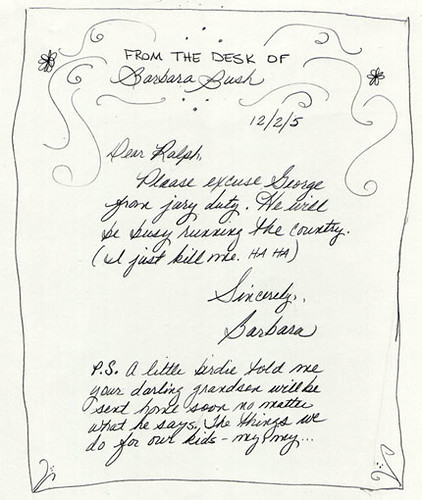 FROM THE DESK OF
Barbara Bush
12/2/5
Dear Ralph,
Please excuse George
from jury duty. He will
be busy running the country.
(I just kill me. HA HA)
Sincerely,
Barbara
P.S. A little birdie told me
your darling grandson will be
sent home soon no matter
what he says. The things we
do for our kids - my, my...